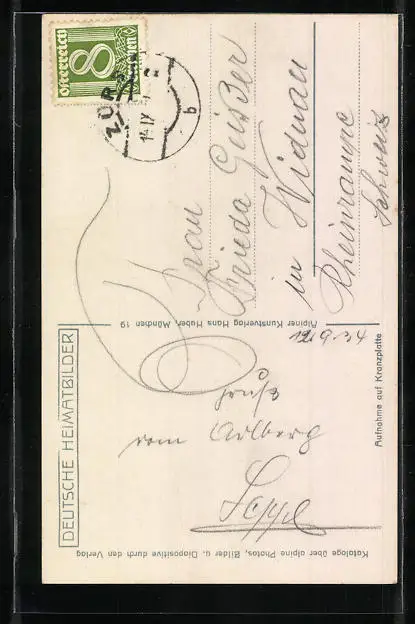 DEUTSCHE HEIMATBILDER
Gruß
vom Arlberg
Seppl
Österreich
8
Groschen
ZÜRS
14 IX
b
Frau
Frieda Geißer
in Widnau
Rheintal
Schweiz
Alpiner Kunstverlag Hans Huber, München 19
12.9.34
Aufnahme auf Kranzplatte
Kataloge über alpine Photos, Bilder u. Diapositive durch den Verlag